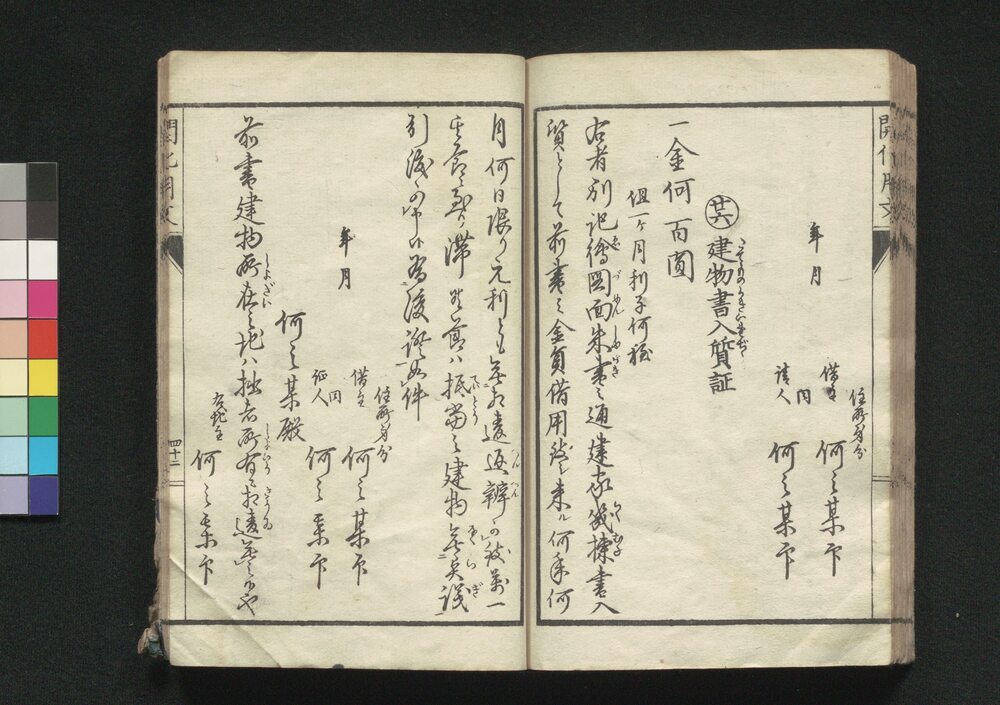 開化用文
年月
住所身分
借主 何之某印
同
請人 何之某印
廿六 建物書入質証
一金何百圓
但一ヶ月利子何程
右者別記繪圖面朱書之通建家幾棟書入
質として前書之金員借用致し来ル何年何
月何日限り元利とも無相違返辨可致萬一
其節ニ至り滞候節ハ抵當之建物無異議
引渡可申候為後證如件
年月
住所身分
借主 何之某印
同
証人 何之某印
何之某殿
前書建物所在之地ハ拙者所有ニ相違無之候也
右地主 何之某印
開化用文
四十二